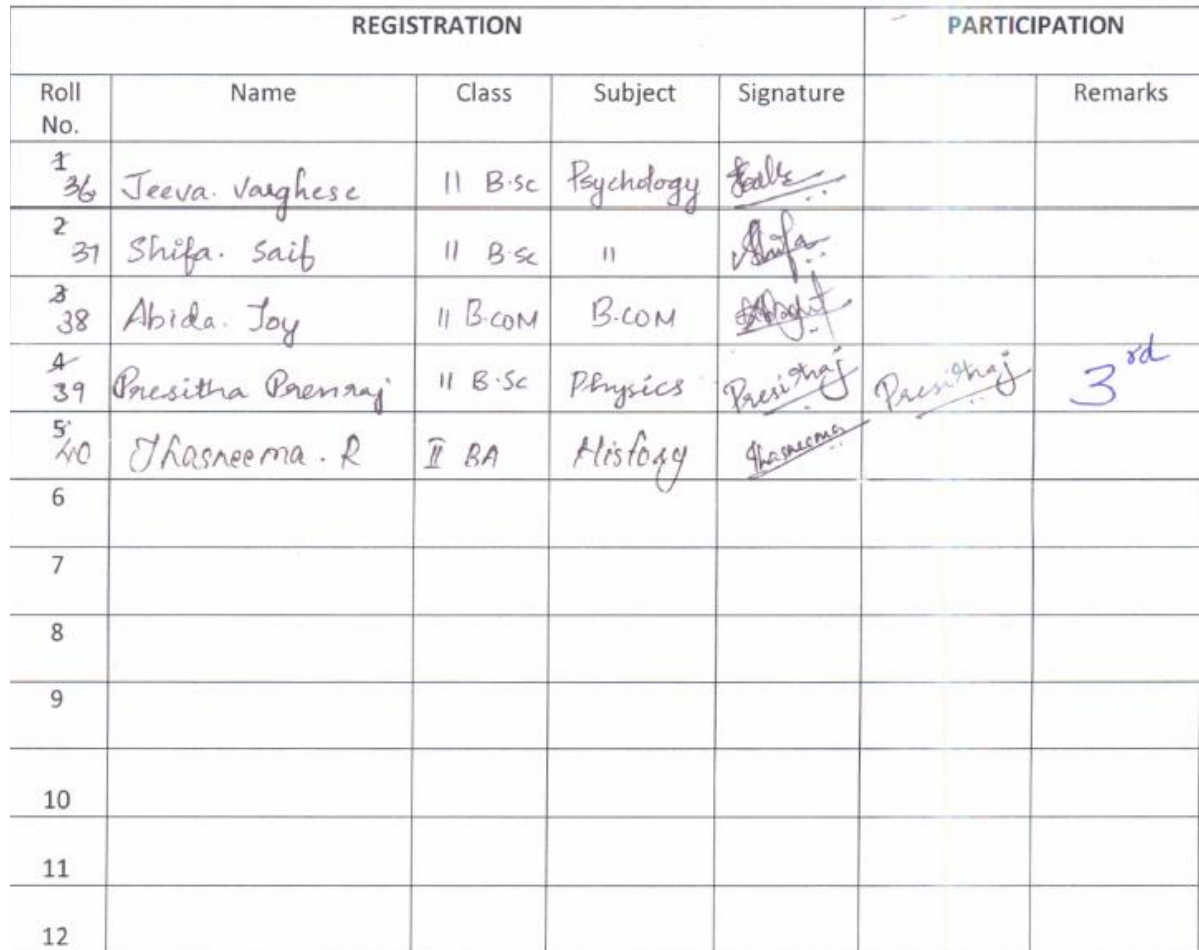 REGISTRATION PARTICIPATION
Roll No. Name Class Subject Signature Remarks
1 36 Jeeva. Varghese 11 B.sc Psychology
2 37 Shifa. Saif 11 B.sc 11 Shifa
3 38 Abida. Joy 11 B.COM B.COM
4 39 Presitha Premraj 11 B.Sc Physics Presithaj Presithaj 3rd
5 40 Thasneema. R II BA History Thasneema
6
7
8
9
10
11
12